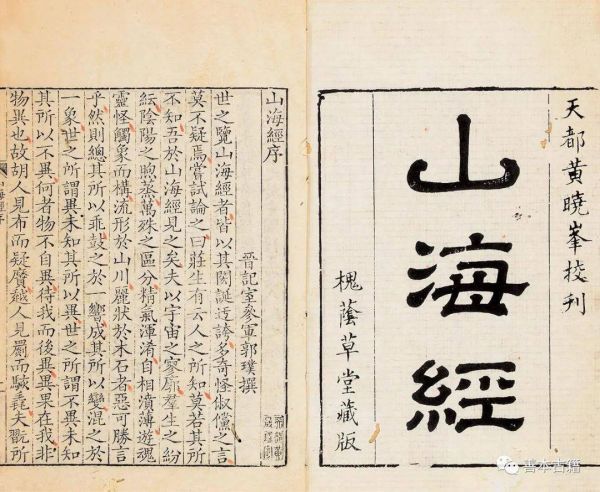 天都黃曉峯挍刊
山海經
槐蔭草堂藏版
山海經序
晉記室參軍郭璞撰
世之覽山海經者皆以其閎誕迂誇多奇怪俶儻之言
莫不疑焉嘗試論之曰莊生有云人之所知莫若其所
不知吾於山海經見之矣夫以宇宙之寥廓羣生之紛
紜陰陽之煦蒸萬殊之區分精氣渾淆自相濆薄遊魂
靈怪觸象而構流形於山川麗狀於木石者惡可勝言
乎然則總其所以乖鼓之於一響成其所以變混之於
一象世之所謂異未知其所以異世之所謂不異未知
其所以不異何者物不自異待我而後異異果在我非
物異也故胡人見布而疑黂越人見罽而駭毳夫翫所
山海經序
善本古籍